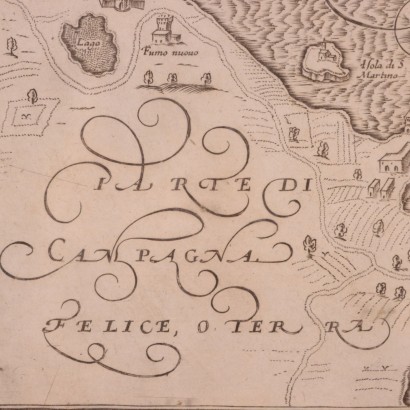 Lago
Fumo nuouo
Isola di S.
Martino
PARTE DI
CAMPAGNA
FELICE, O TERRA